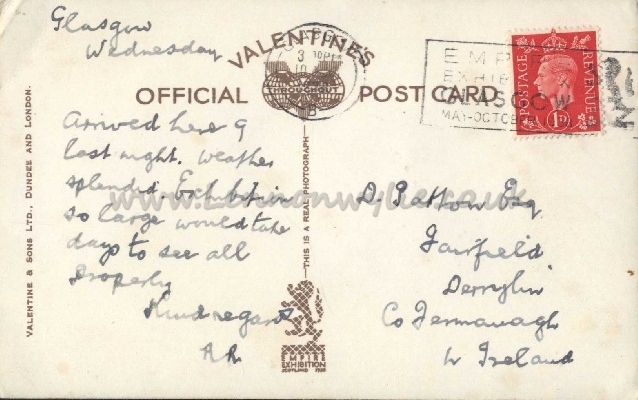 Glasgow
Wednesday
VALENTINE'S
OFFICIAL POST CARD
EMPIRE
EXHIB
GLASGOW
MAY-OCTOBER
POSTAGE
REVENUE
1D
Arrived here 9
last night. Weather
splendid. Exhibition
so large would take
days to see all
properly
Kind regards
D. Patton Esq
Fairfield
Derrylin
Co Fermanagh
Ireland
VALENTINE & SONS LTD., DUNDEE AND LONDON.
THIS IS A REAL PHOTOGRAPH
EMPIRE
EXHIBITION
SCOTLAND 1938